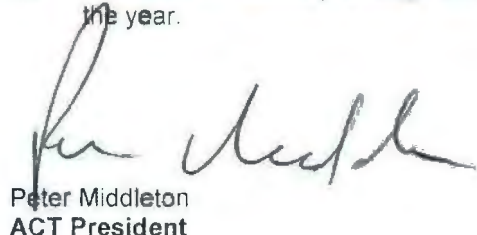 the year.
Peter Middleton
ACT President